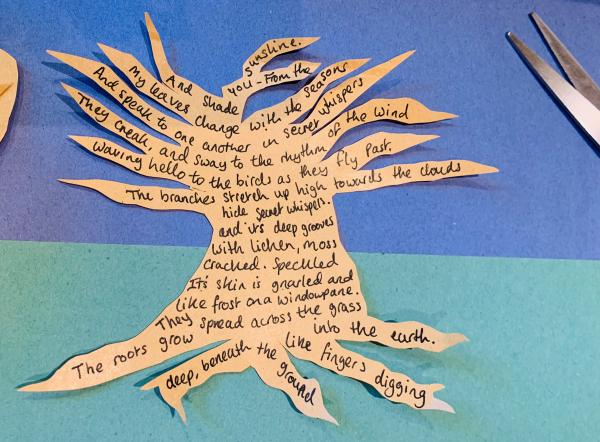 The roots grow
deep, beneath the ground
like fingers digging
into the earth.
They spread across the grass
like frost on a windowpane.
It's skin is gnarled and
cracked. Speckled
with lichen, moss
and it's deep grooves
hide secret whispers.
The branches stretch up high towards the clouds
waving hello to the birds as they fly past.
They creak, and sway to the rhythm of the wind
And speak to one another in secret whispers
My leaves change with the seasons
And shade you - from the
sunshine.